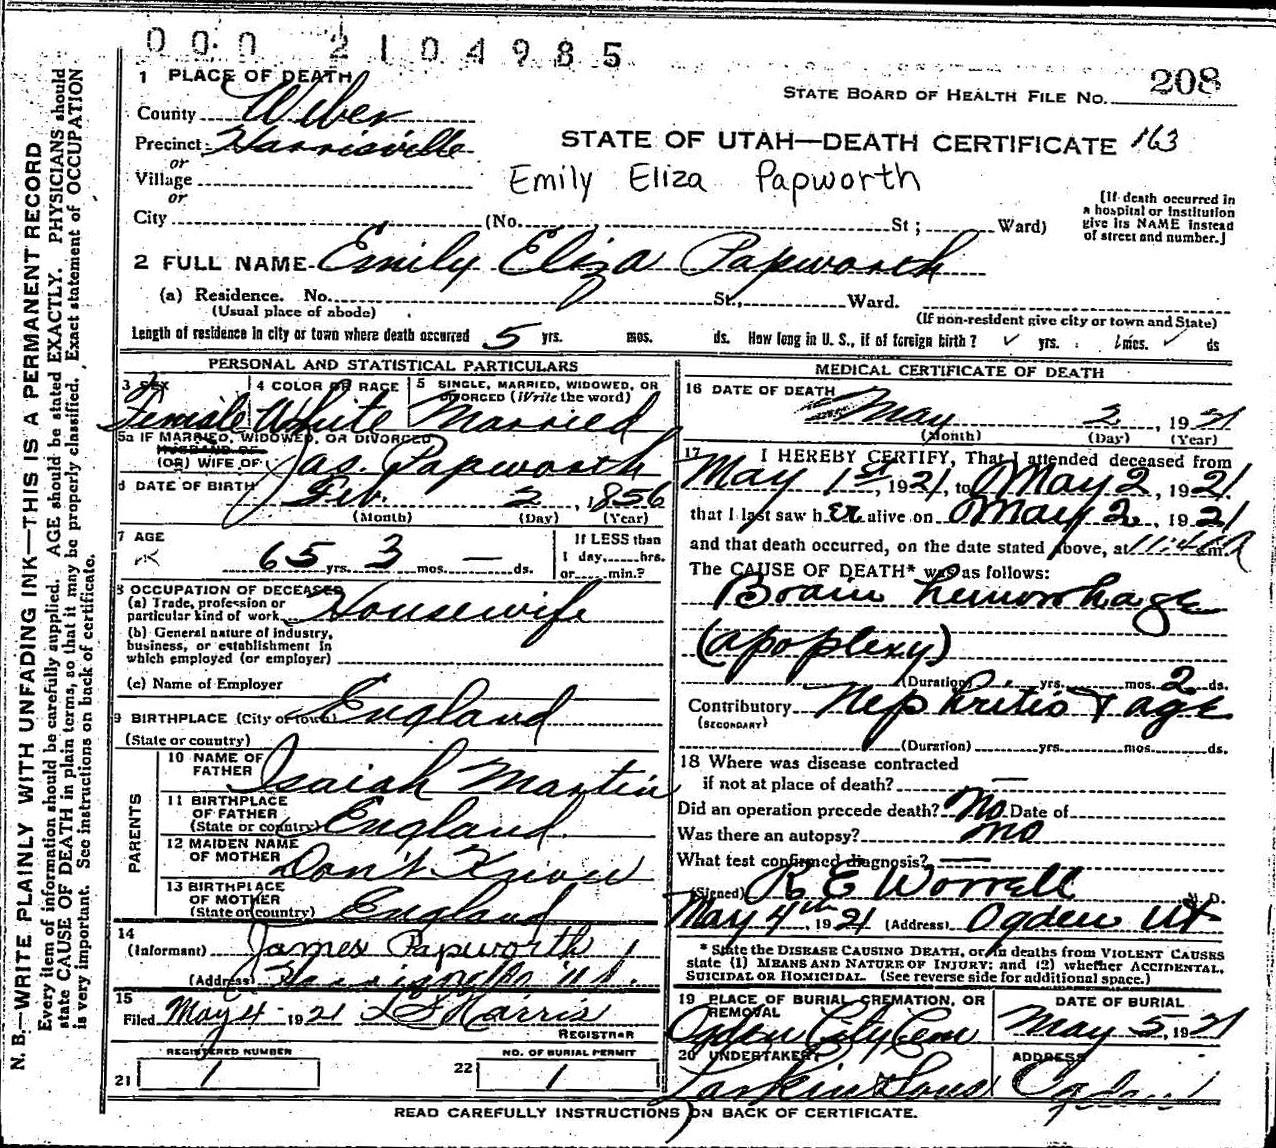 000 2104985
1 PLACE OF DEATH
208
STATE BOARD OF HEALTH FILE No.
County Weber
STATE OF UTAH—DEATH CERTIFICATE 163
Precinct Harrisville
or
Village
Emily Eliza Papworth
or
City (No. St; Ward)
[If death occurred in
a hospital or institution
give its NAME instead
of street and number.]
2 FULL NAME Emily Eliza Papworth
(a) Residence. No. St., Ward.
(Usual place of abode)
(If non-resident give city or town and State)
Length of residence in city or town where death occurred 5 yrs. mos. ds. How long in U. S., if of foreign birth? yrs. mos. ds
PERSONAL AND STATISTICAL PARTICULARS
3 SEX
Female
4 COLOR OR RACE
White
5 SINGLE, MARRIED, WIDOWED, OR
DIVORCED (Write the word)
Married
5a IF MARRIED, WIDOWED, OR DIVORCED
HUSBAND OF
(OR) WIFE OF Jas. Papworth
6 DATE OF BIRTH Feb. 2, 1856
(Month) (Day) (Year)
7 AGE
65 yrs. 3 mos. — ds.
If LESS than
1 day, hrs.
or min.?
8 OCCUPATION OF DECEASED
(a) Trade, profession or
particular kind of work Housewife
(b) General nature of industry,
business, or establishment in
which employed (or employer)
(c) Name of Employer
9 BIRTHPLACE (City or town) England
(State or country)
PARENTS
10 NAME OF
FATHER Isaiah Martin
11 BIRTHPLACE
OF FATHER
(State or country) England
12 MAIDEN NAME
OF MOTHER Don't Know
13 BIRTHPLACE
OF MOTHER
(State or country) England
14
(Informant) James Papworth
(Address)
15
Filed May 4 1921 Harris
REGISTRAR
REGISTERED NUMBER
21 1
NO. OF BURIAL PERMIT
22 1
MEDICAL CERTIFICATE OF DEATH
16 DATE OF DEATH
May 2, 1921
(Month) (Day) (Year)
17 I HEREBY CERTIFY, That I attended deceased from
May 1st, 1921, to May 2, 1921
that I last saw her alive on May 2, 1921
and that death occurred, on the date stated above, at m.
The CAUSE OF DEATH* was as follows:
Brain hemorrhage
(apoplexy)
(Duration) yrs. mos. 2 ds.
Contributory Nephritis & age
(SECONDARY)
(Duration) yrs. mos. ds.
18 Where was disease contracted
if not at place of death? —
Did an operation precede death? No Date of
Was there an autopsy? no
What test confirmed diagnosis? —
(Signed) R E Worrell M. D.
May 4th, 1921 (Address) Ogden Ut
* State the DISEASE CAUSING DEATH, or, in deaths from VIOLENT CAUSES
state (1) MEANS AND NATURE OF INJURY; and (2) whether ACCIDENTAL,
SUICIDAL OR HOMICIDAL. (See reverse side for additional space.)
19 PLACE OF BURIAL, CREMATION, OR
REMOVAL
Ogden City Cem
DATE OF BURIAL
May 5, 1921
20 UNDERTAKER
Larkin & Sons
ADDRESS
Ogden
READ CAREFULLY INSTRUCTIONS ON BACK OF CERTIFICATE.
N. B.—WRITE PLAINLY WITH UNFADING INK—THIS IS A PERMANENT RECORD
Every item of information should be carefully supplied. AGE should be stated EXACTLY. PHYSICIANS should
state CAUSE OF DEATH in plain terms, so that it may be properly classified. Exact statement of OCCUPATION
is very important. See instructions on back of certificate.